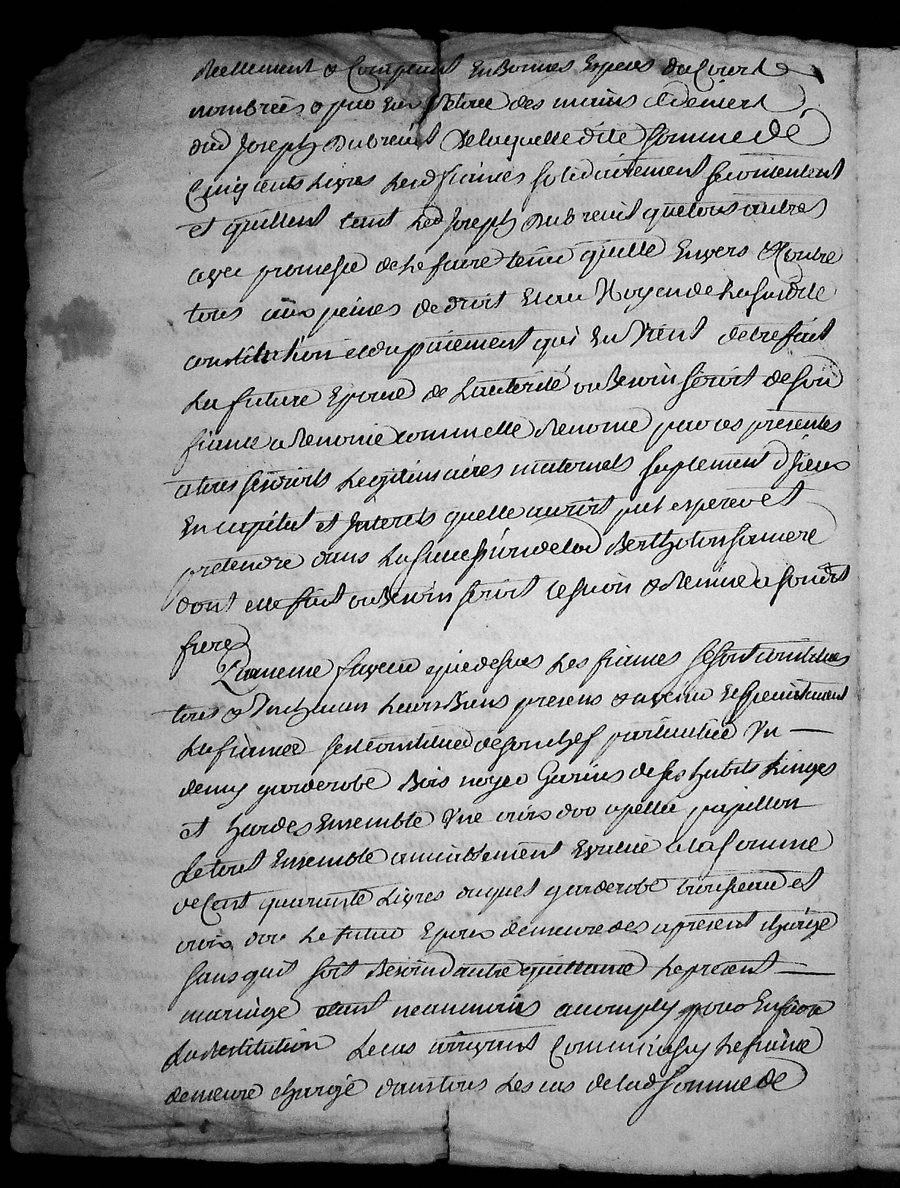 Reellement & Comptant En Bonnes Especes du Court
nombrées & par Eux Retirée des mains & deniers
dud Joseph Dubreuit De laquelle dite somme dé
Cinq cents Livres Lesd fiancés solidairement se contentent
et quittent tant Led Joseph Dubreuit que tous autres
avec promesse de Le faire tenir quitte Envers & Contre
tous aux peines de droit Et au Moyen de La susdite
constitution et du paiement qui En Vient detre fait
La future Epouse de Lautorité ou Besoin seroit de son
fiancé a Renoncé comm elle Renonce par ces présentes
a tous ses droits Legitimaires maternels suplement d'Jceux
En capital et Jnterets quelle auroit put esperer et
pretendre dans La succession de lad Bertholon sa mere
dont elle fait ou Besoin seroit cession & Remise a sond
frere
D'a meme faveur que dessus Les fiancés se sont constitués
tous & Un chacun Leurs Biens presens & avenir et specialement
La fiancée sest constituée de son chef particulier Un
demy garderobe Bois noyer Garnis de ses habits Linges
et hardes Ensemble Une croix dor apellée papillon
Le tout Ensemble amiablement Evalué a la somme
de Cent quarante Livres duquel garderobe trousseau et
croix dor Le futur Epoux demeure des apresent chargé
sans quil soit Besoin dautre quittance Le present
mariage etant neanmoins accomply pour En faire
La Restitution Le cas arrivant Comm aussy Le fiancé
demeure chargé dans tous Les cas de lad somme de